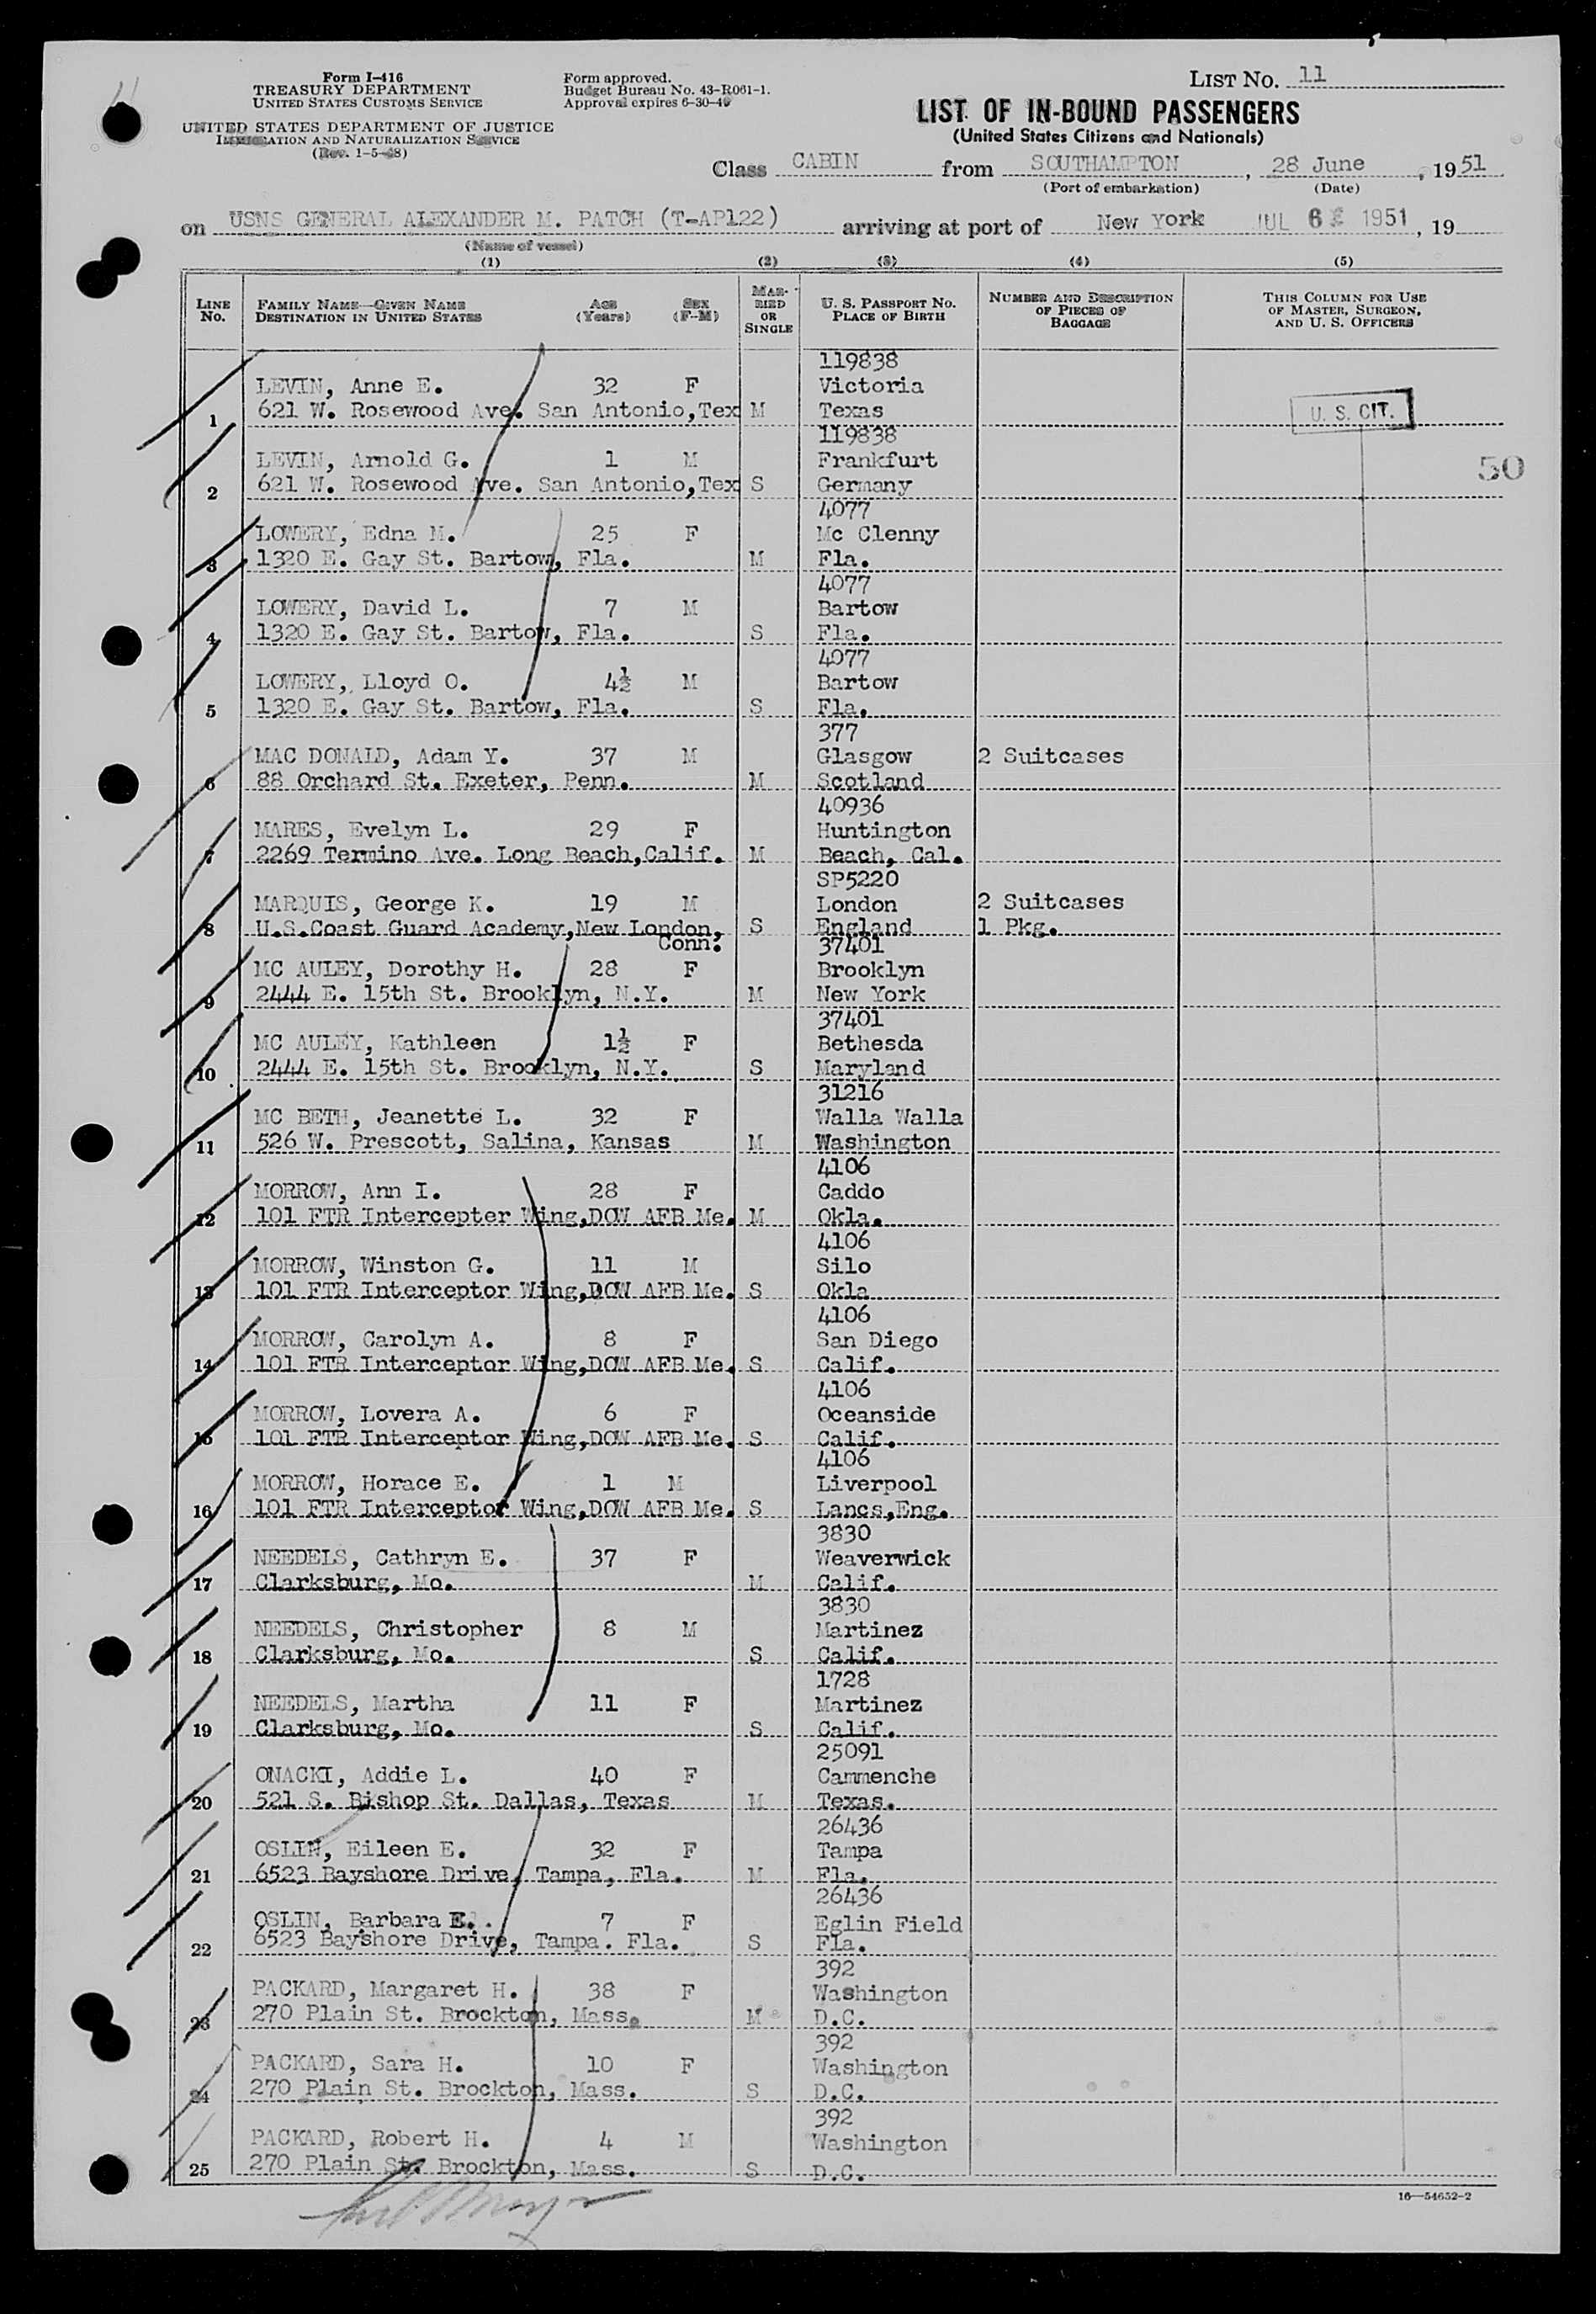 Form I-416
TREASURY DEPARTMENT
UNITED STATES CUSTOMS SERVICE
UNITED STATES DEPARTMENT OF JUSTICE
IMMIGRATION AND NATURALIZATION SERVICE
(Rev. 1-5-48)
Form approved.
Budget Bureau No. 43-R061-1.
Approval expires 6-30-49
LIST No. 11
LIST OF IN-BOUND PASSENGERS
(United States Citizens and Nationals)
Class CABIN from SOUTHAMPTON, 28 June, 1951
(Port of embarkation) (Date)
on USNS GENERAL ALEXANDER M. PATCH (T-AP122) arriving at port of New York JUL 6 1951, 19
(Name of vessel)
(1) (2) (3) (4) (5)
LINE No. FAMILY NAME—GIVEN NAME DESTINATION IN UNITED STATES AGE (Years) SEX (F-M) MARRIED OR SINGLE U. S. PASSPORT No. PLACE OF BIRTH NUMBER AND DESCRIPTION OF PIECES OF BAGGAGE THIS COLUMN FOR USE OF MASTER, SURGEON, AND U. S. OFFICERS
119838
LEVIN, Anne E. 32 F Victoria
1 621 W. Rosewood Ave. San Antonio,Tex M Texas U. S. CIT.
119838
LEVIN, Arnold G. 1 M Frankfurt
2 621 W. Rosewood Ave. San Antonio,Tex S Germany 50
4077
LOWERY, Edna M. 25 F Mc Clenny
3 1320 E. Gay St. Bartow, Fla. M Fla.
4077
LOWERY, David L. 7 M Bartow
4 1320 E. Gay St. Bartow, Fla. S Fla.
4077
LOWERY, Lloyd O. 4½ M Bartow
5 1320 E. Gay St. Bartow, Fla. S Fla.
377
MAC DONALD, Adam Y. 37 M Glasgow 2 Suitcases
6 88 Orchard St. Exeter, Penn. M Scotland
40936
MARES, Evelyn L. 29 F Huntington
7 2269 Termino Ave. Long Beach,Calif. M Beach, Cal.
SP5220
MARQUIS, George K. 19 M London 2 Suitcases
8 U.S.Coast Guard Academy,New London, S England 1 Pkg.
Conn. 37401
MC AULEY, Dorothy H. 28 F Brooklyn
9 2444 E. 15th St. Brooklyn, N.Y. M New York
37401
MC AULEY, Kathleen 1½ F Bethesda
10 2444 E. 15th St. Brooklyn, N.Y. S Maryland
31216
MC BETH, Jeanette L. 32 F Walla Walla
11 526 W. Prescott, Salina, Kansas M Washington
4106
MORROW, Ann I. 28 F Caddo
12 101 FTR Intercepter Wing,DOW AFB Me. M Okla.
4106
MORROW, Winston G. 11 M Silo
13 101 FTR Interceptor Wing,DOW AFB Me. S Okla
4106
MORROW, Carolyn A. 8 F San Diego
14 101 FTR Interceptor Wing,DOW AFB Me. S Calif.
4106
MORROW, Lovera A. 6 F Oceanside
15 101 FTR Interceptor Wing,DOW AFB Me. S Calif.
4106
MORROW, Horace E. 1 M Liverpool
16 101 FTR Interceptor Wing,DOW AFB Me. S Lancs,Eng.
3830
NEEDELS, Cathryn E. 37 F Weaverwick
17 Clarksburg, Mo. M Calif.
3830
NEEDELS, Christopher 8 M Martinez
18 Clarksburg, Mo. S Calif.
1728
NEEDELS, Martha 11 F Martinez
19 Clarksburg, Mo. S Calif.
25091
ONACKI, Addie L. 40 F Cammenche
20 521 S. Bishop St. Dallas, Texas M Texas.
26436
OSLIN, Eileen E. 32 F Tampa
21 6523 Bayshore Drive, Tampa, Fla. M Fla.
26436
OSLIN, Barbara E. 7 F Eglin Field
22 6523 Bayshore Drive, Tampa. Fla. S Fla.
392
PACKARD, Margaret H. 38 F Washington
23 270 Plain St. Brockton, Mass. M D.C.
392
PACKARD, Sara H. 10 F Washington
24 270 Plain St. Brockton, Mass. S D.C.
392
PACKARD, Robert H. 4 M Washington
25 270 Plain St. Brockton, Mass. S D.C.
16—54652-2